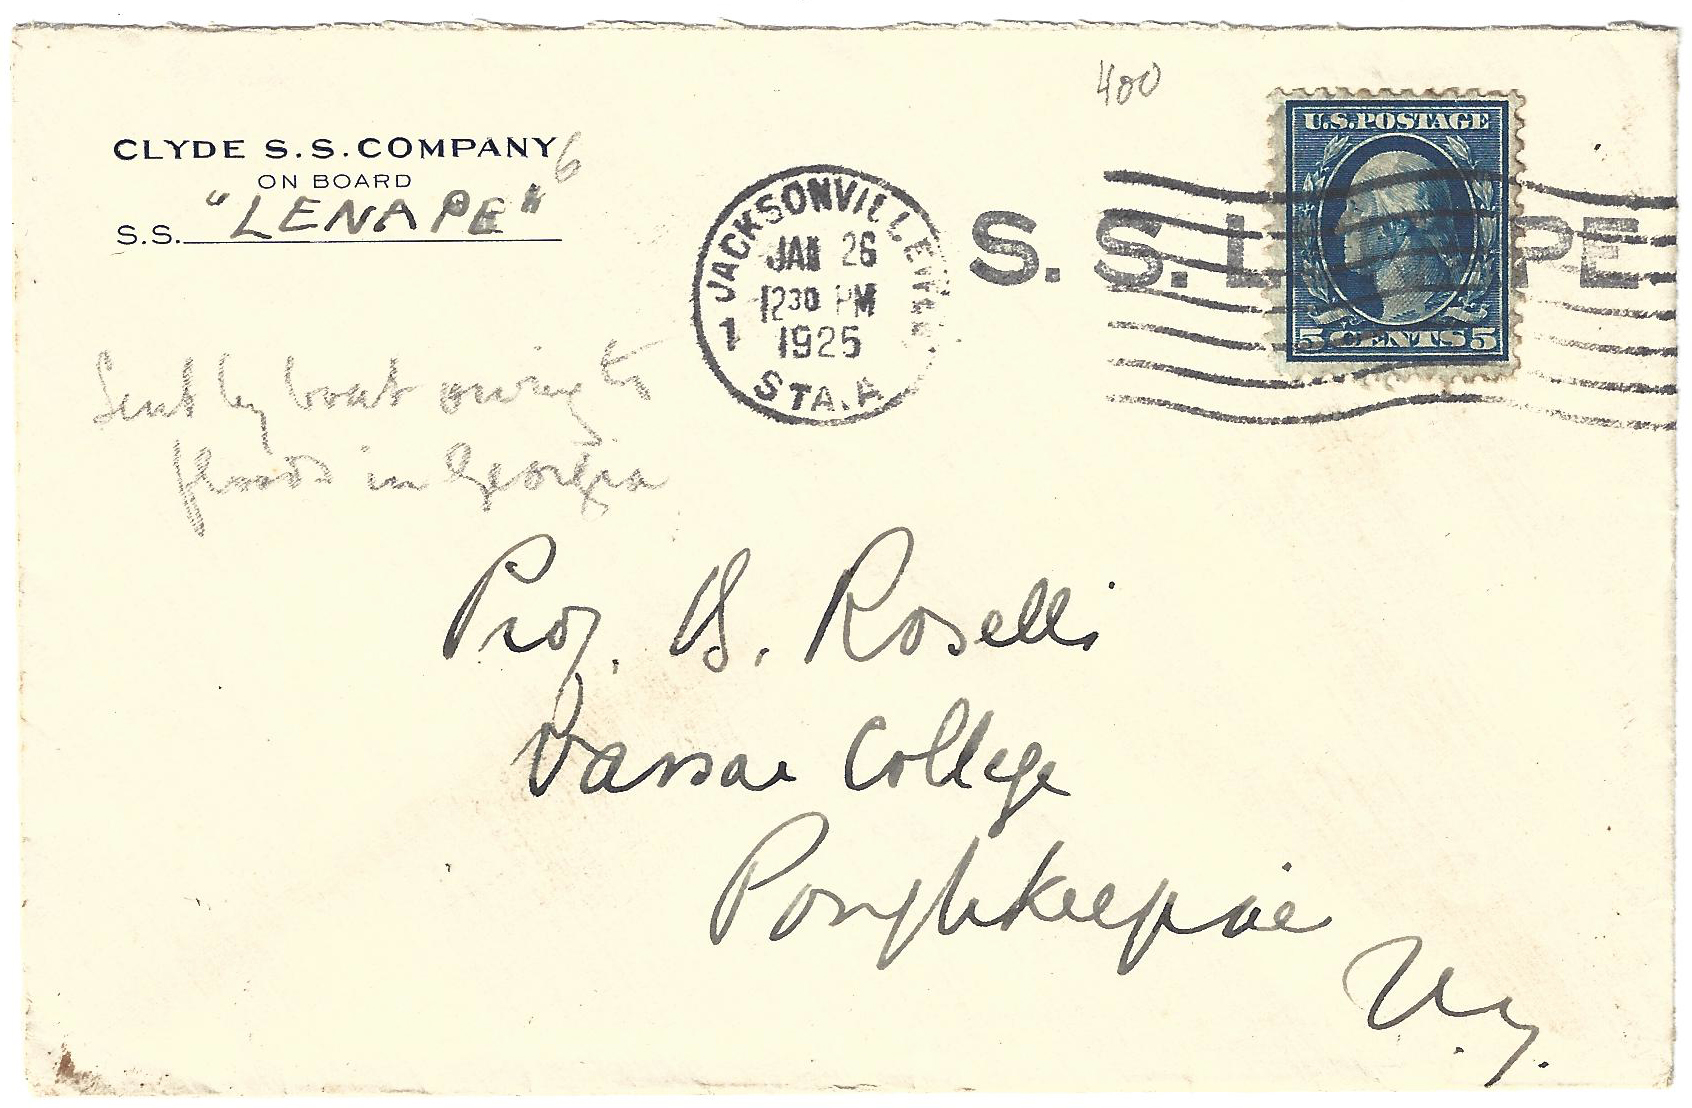 400
CLYDE S.S. COMPANY 6
ON BOARD
S.S. "LENAPE"
JACKSONVILLE, FLA.
JAN 26
12 30 PM
1925
1
STA. A
S. S. LENAPE
U.S. POSTAGE
5 CENTS 5
Sent by boat owing to
floods in Georgia
Prof. B. Roselli
Vassar College
Poughkeepsie
N.Y.